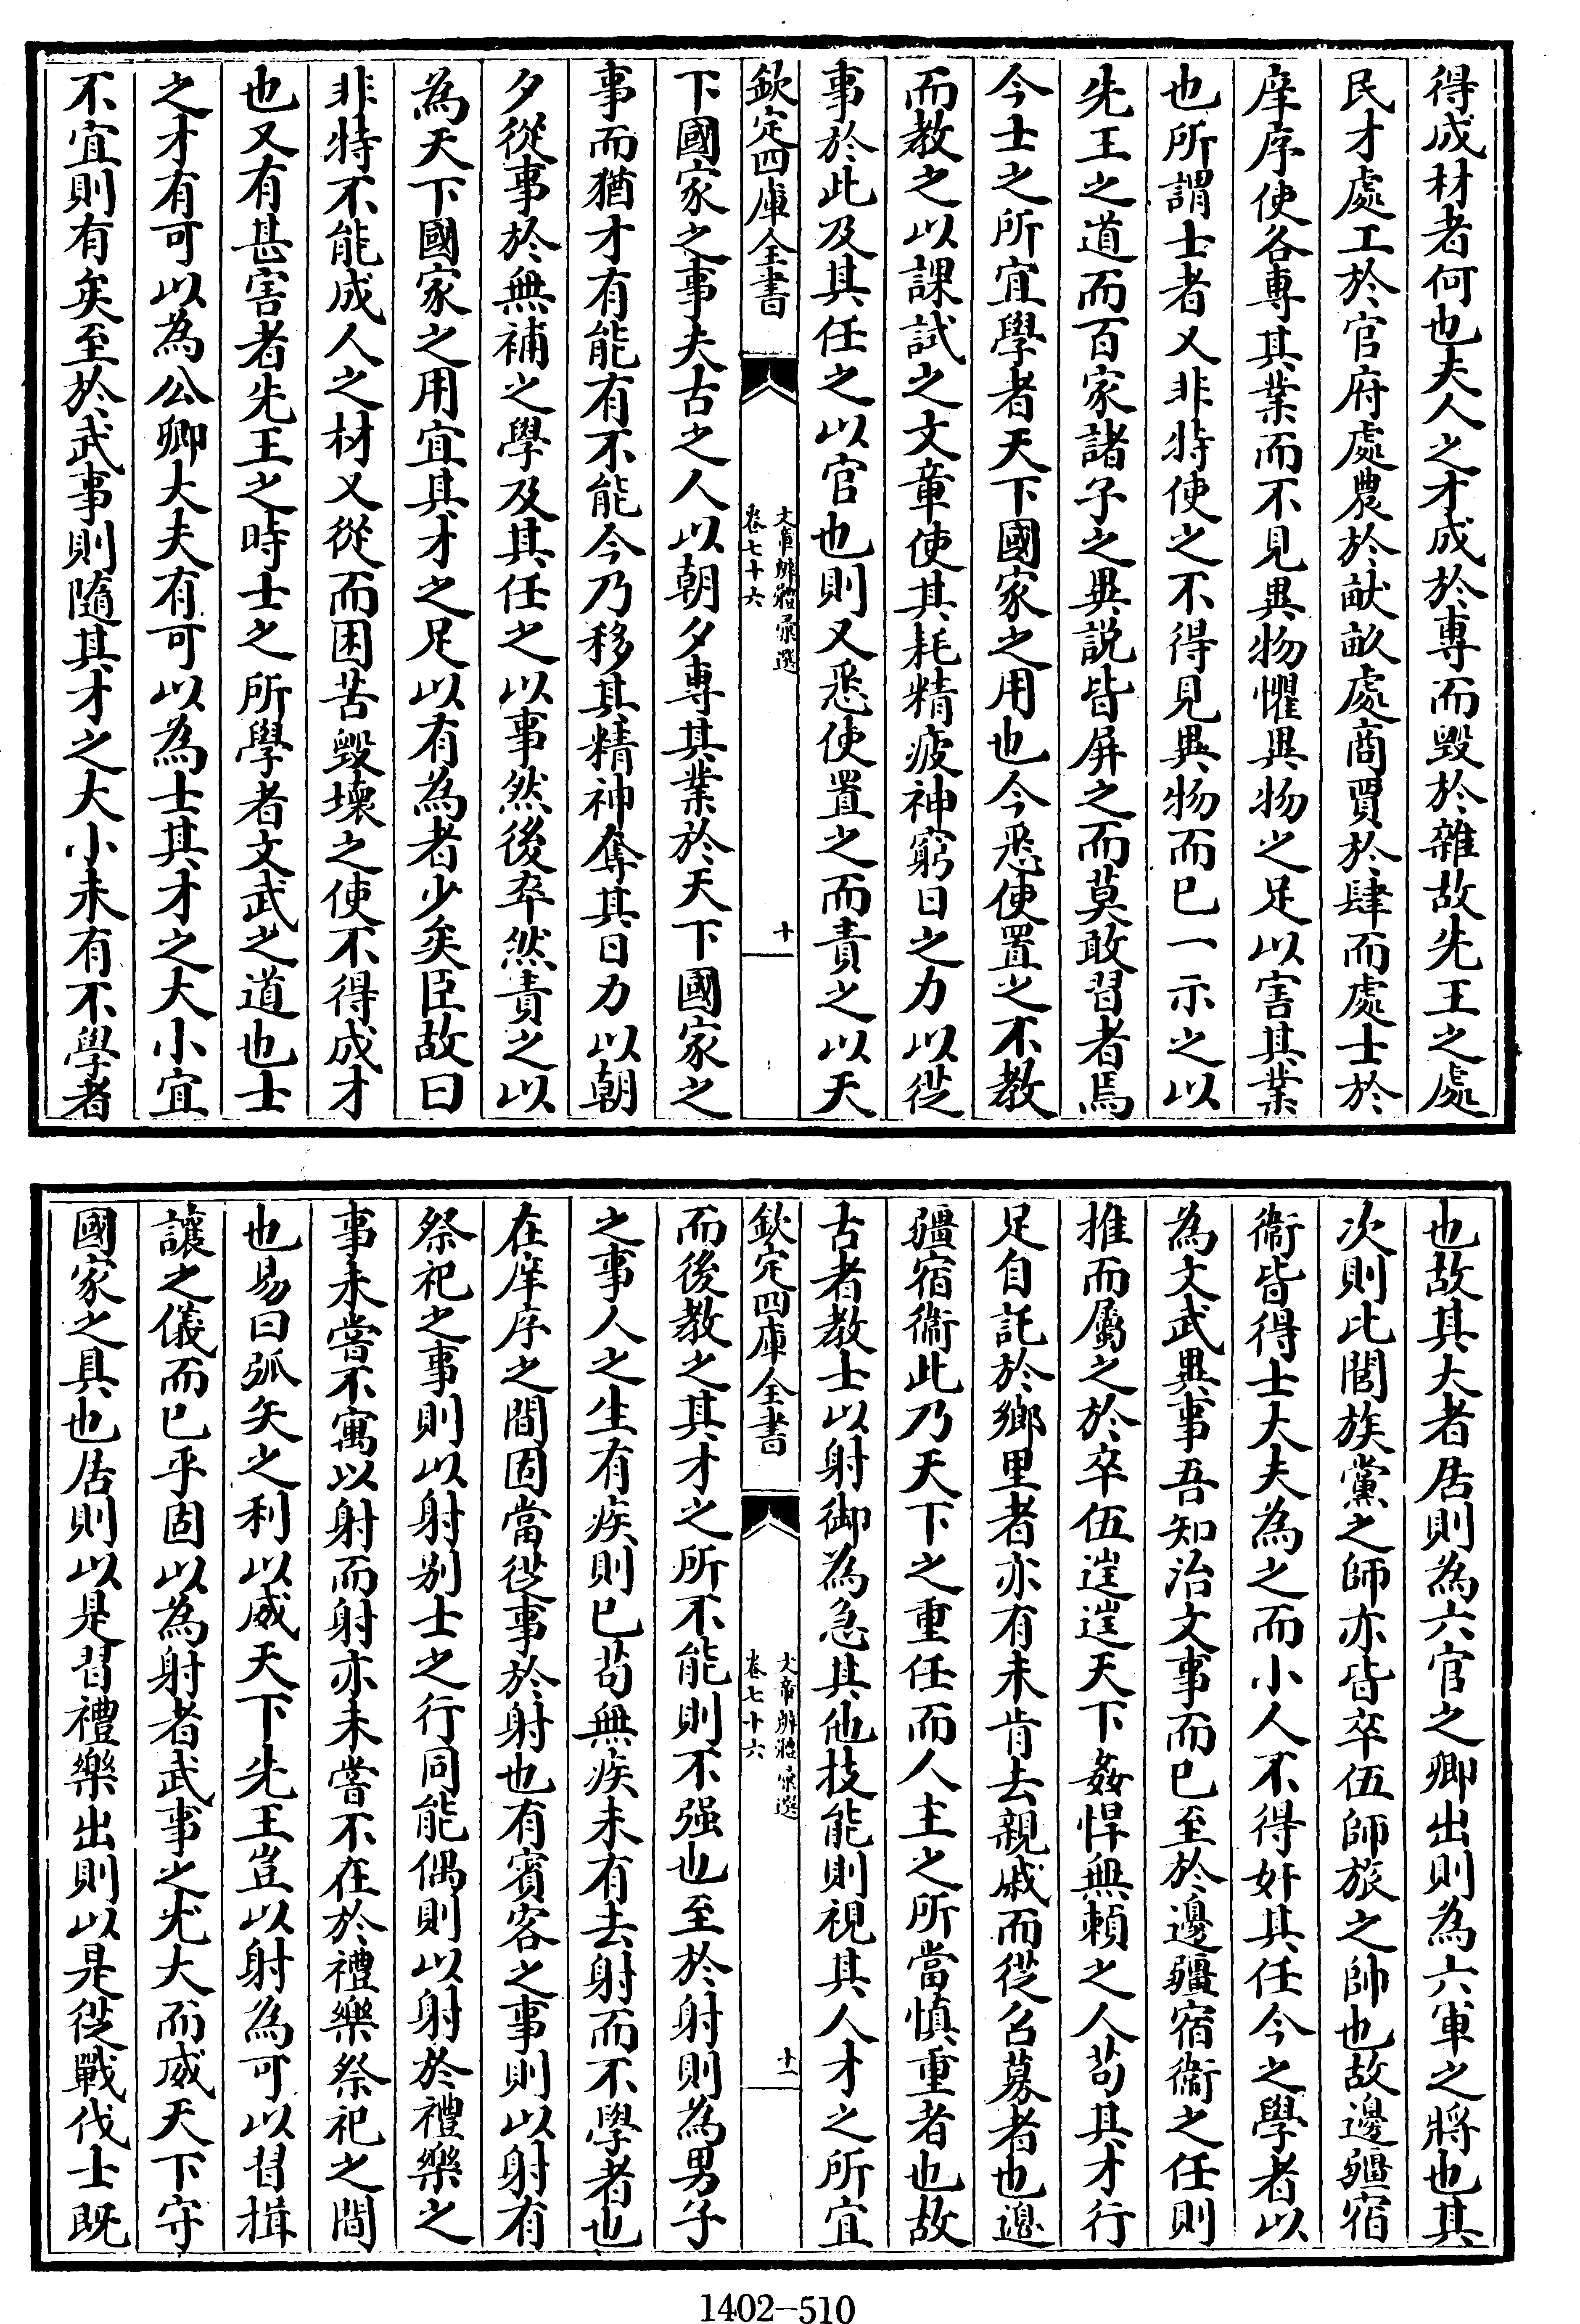 得成材者何也夫人之才成於專而毁於雜故先王之處
民才處工於官府處農於畎畝處商賈於肆而處士於
庠序使各專其業而不見異物懼異物之足以害其業
也所謂士者又非特使之不得見異物而已一示之以
先王之道而百家諸子之異説皆屏之而莫敢習者焉
今士之所宜學者天下國家之用也今悉使置之不教
而教之以課試之文章使其耗精疲神窮日之力以從
事於此及其任之以官也則又悉使置之而責之以天
欽定四庫全書
文章辨體彙選
卷七十六
十
下國家之事夫古之人以朝夕專其業於天下國家之
事而猶才有能有不能今乃移其精神奪其日力以朝
夕從事於無補之學及其任之以事然後卒然責之以
為天下國家之用宜其才之足以有為者少矣臣故曰
非特不能成人之材又從而困苦毁壞之使不得成才
也又有甚害者先王之時士之所學者文武之道也士
之才有可以為公卿大夫有可以為士其才之大小宜
不宜則有矣至於武事則隨其才之大小未有不學者
也故其大者居則為六官之卿出則為六軍之將也其
次則比閭族黨之師亦皆卒伍師旅之帥也故邊疆宿
衞皆得士大夫為之而小人不得奸其任今之學者以
為文武異事吾知治文事而已至於邊疆宿衞之任則
推而屬之於卒伍逬逬天下姦悍無賴之人苟其才行
足自託於鄉里者亦有未肯去親戚而從召募者也邊
疆宿衞此乃天下之重任而人主之所當慎重者也故
古者教士以射御為急其他技能則視其人才之所宜
欽定四庫全書
文章辨體彙選
卷七十六
十一
而後教之其才之所不能則不强也至於射則為男子
之事人之生有疾則已苟無疾未有去射而不學者也
在庠序之間固當從事於射也有賓客之事則以射有
祭祀之事則以射别士之行同能偶則以射於禮樂之
事未嘗不寓以射而射亦未嘗不在於禮樂祭祀之間
也易曰弧矢之利以威天下先王豈以射為可以習揖
讓之儀而已乎固以為射者武事之尤大而威天下守
國家之具也居則以是習禮樂出則以是從戰伐士既
1402-510